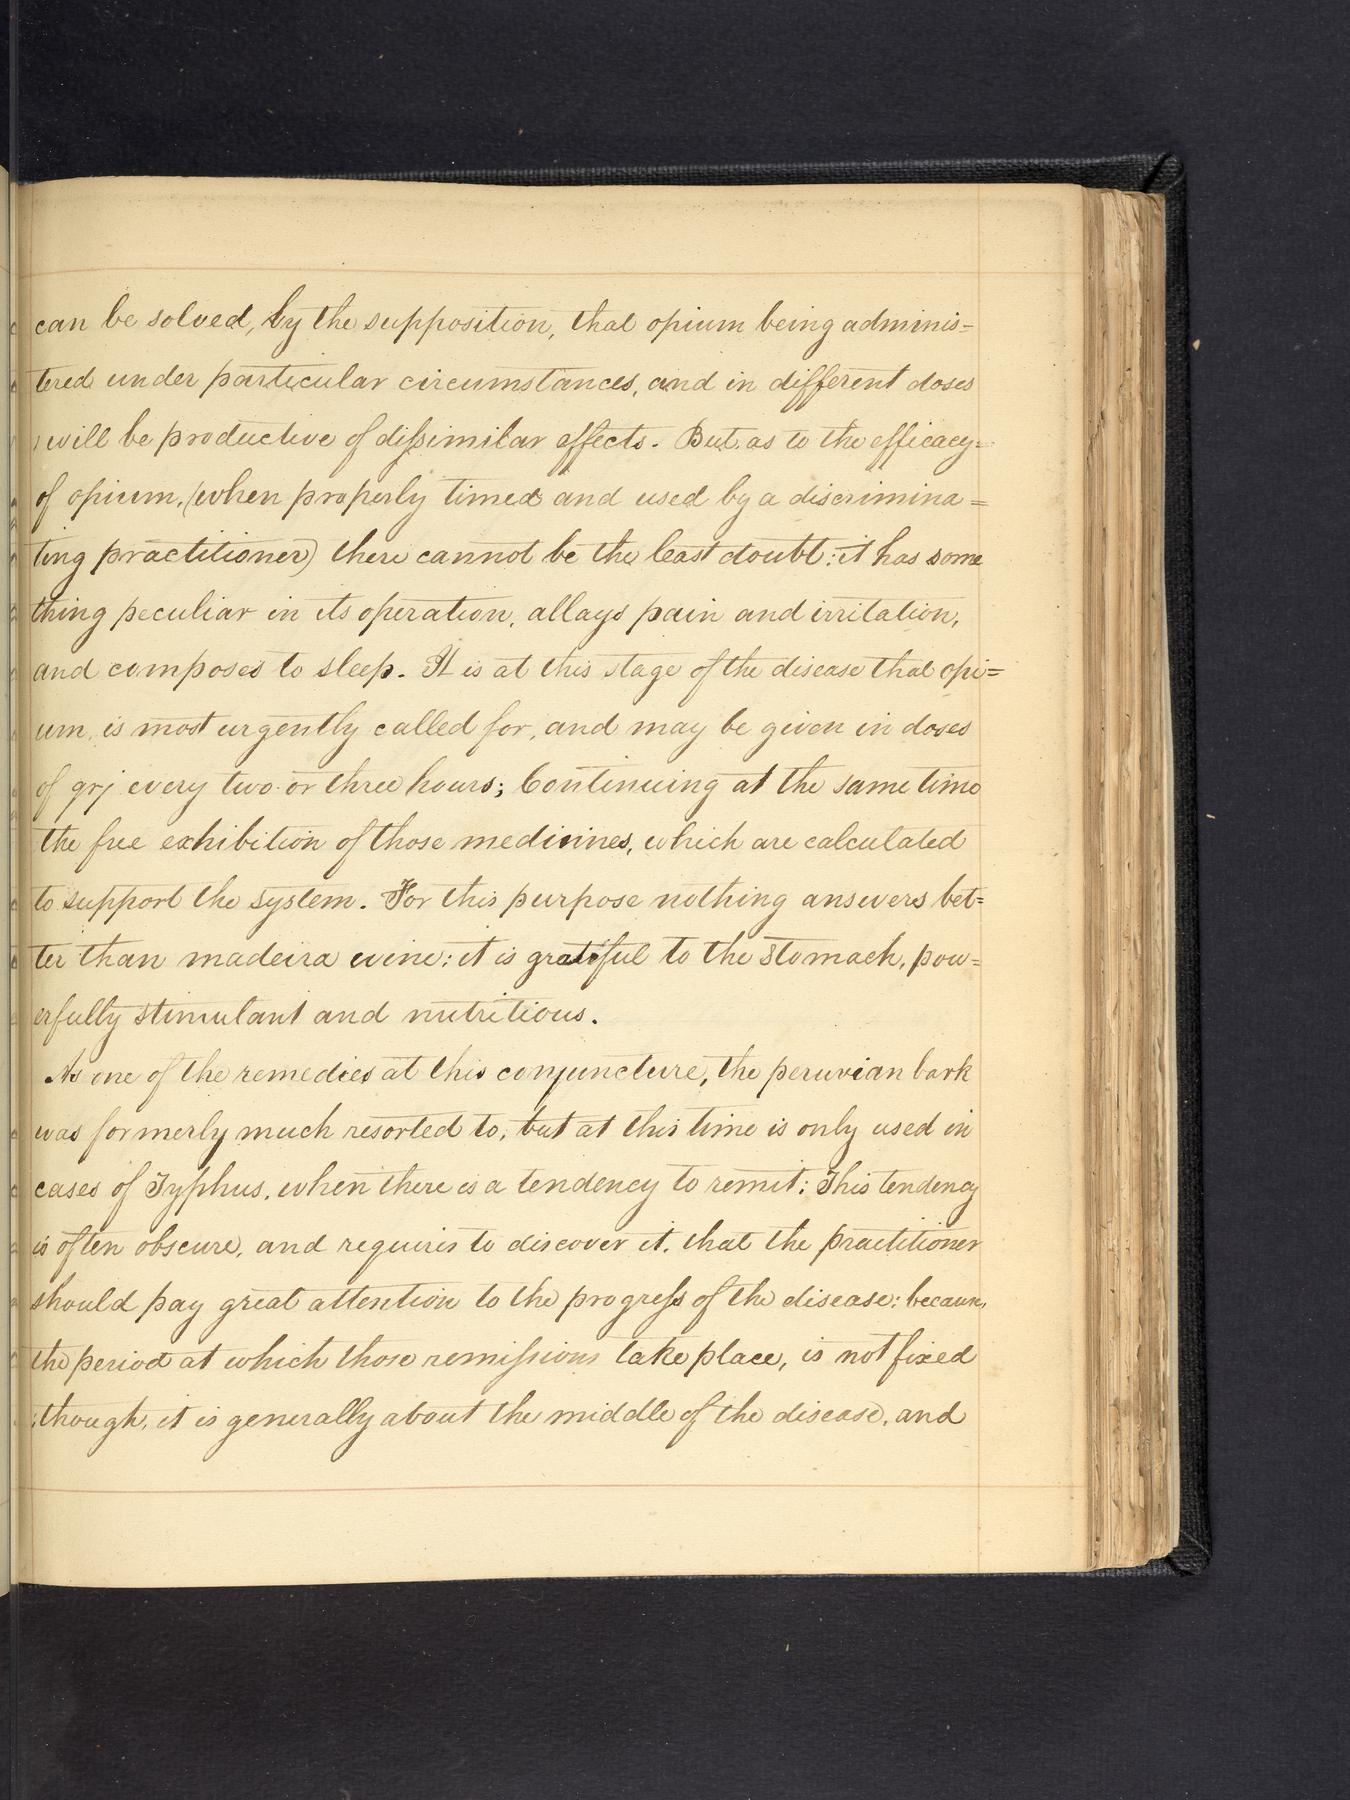 can be solved, by the supposition, that opium being adminis=
tered under particular circumstances, and in different doses
will be productive of dissimilar effects. But as to the efficacy=
of opium, (when properly timed and used by a discrimina=
ting practitioner) there cannot be the least doubt: it has some
thing peculiar in its operation, allays pain and irritation,
and composes to sleep. It is at this stage of the disease that opi=
um, is most urgently called for, and may be given in doses
of grj every two or three hours; Continuing at the same time
the free exhibition of those medicines, which are calculated
to support the system. For this purpose nothing answers bet=
ter than madeira wine: it is grateful to the stomach, pow=
erfully stimulant and nutritious.
As one of the remedies at this conjuncture, the peruvian bark
was formerly much resorted to, but at this time is only used in
cases of Typhus, when there is a tendency to remit: This tendency
is often obscure, and requiris to discover it, that the practitioner
should pay great attention to the progress of the disease: because,
the period at which those remissions take place, is not fixed
though, it is generally about the middle of the disease, and